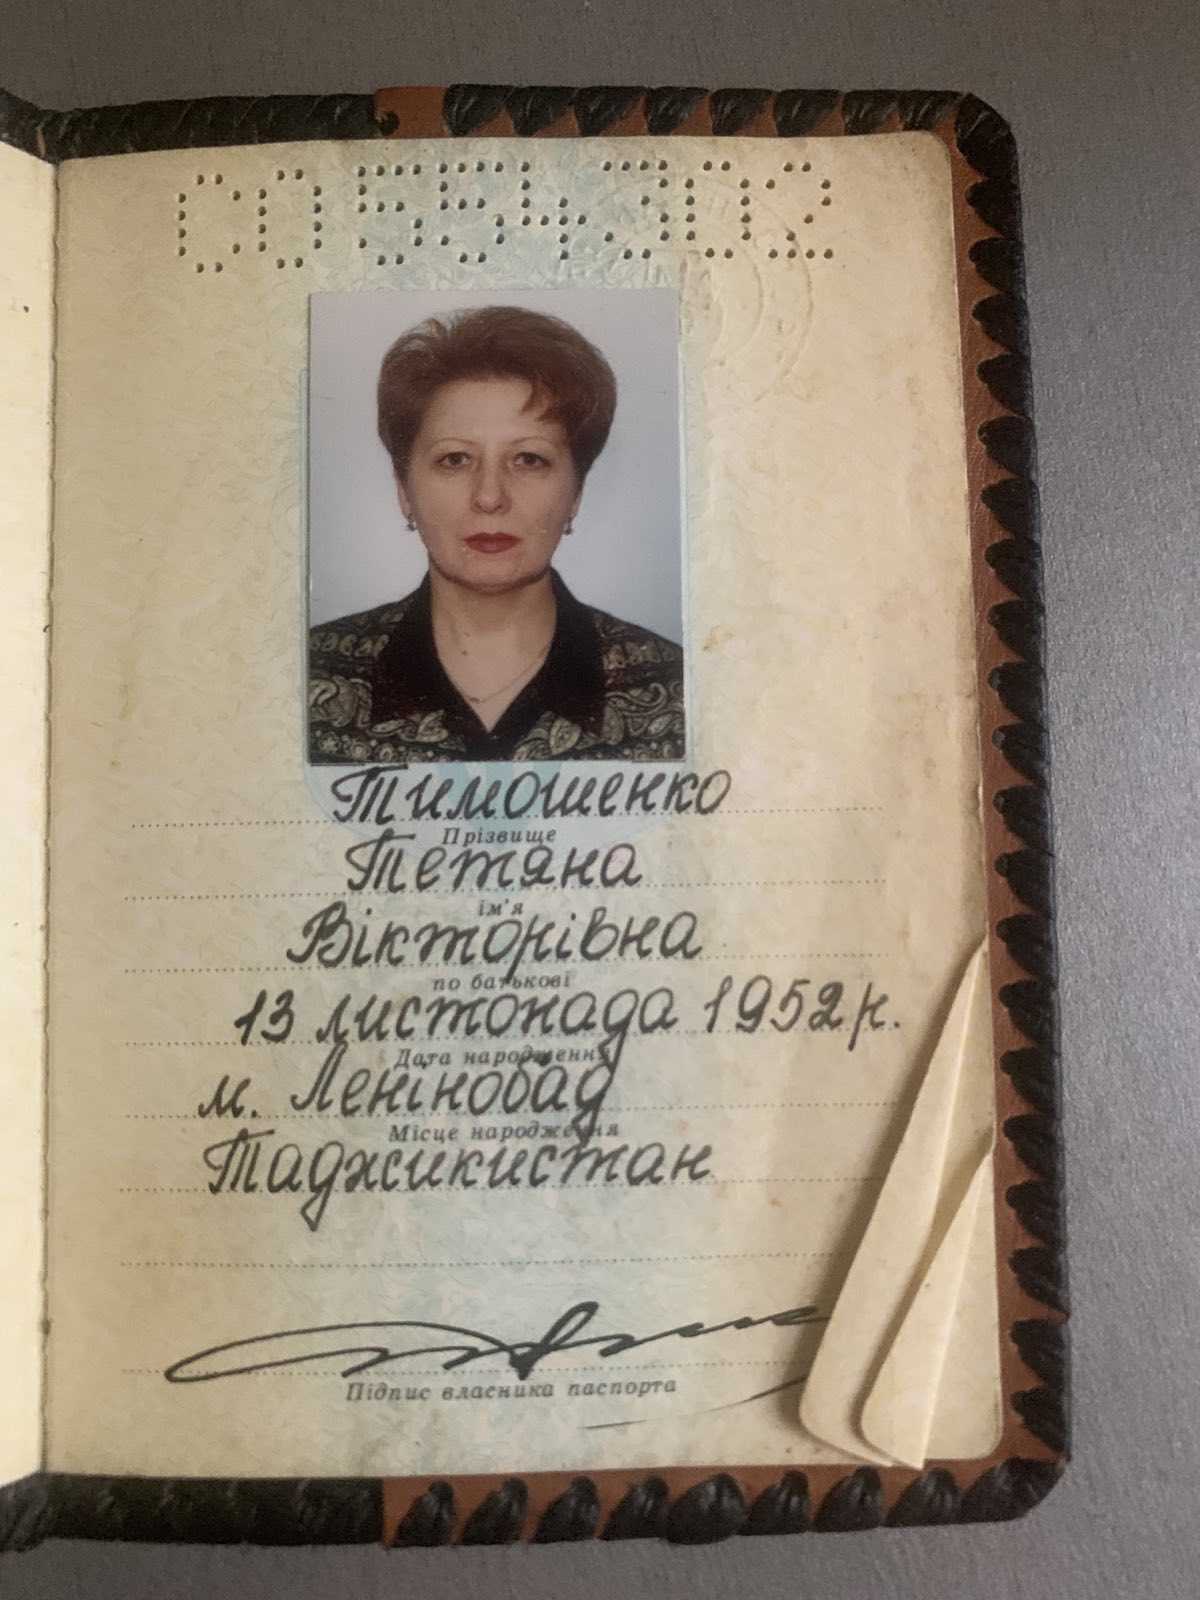 СО554302
Тимошенко
Прізвище
Тетяна
ім'я
Вікторівна
по батькові
13 листопада 1952 р.
Дата народження
м. Ленінобад
Місце народження
Таджикистан
Підпис власника паспорта